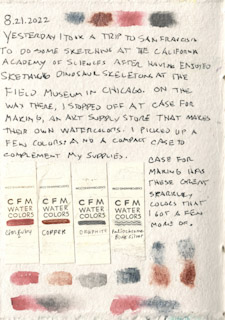 8.21.2022
YESTERDAY I TOOK A TRIP TO SAN FRANCISCO
TO DO SOME SKETCHING AT THE CALIFORNIA
ACADEMY OF SCIENCES AFTER HAVING ENJOYED
SKETCHING DINOSAUR SKELETONS AT THE
FIELD MUSEUM IN CHICAGO. ON THE
WAY THERE, I STOPPED OFF AT CASE FOR
MAKING, AN ART SUPPLY STORE THAT MAKES
THEIR OWN WATERCOLORS. I PICKED UP A
FEW COLORS AND A COMPACT CASE TO
COMPLEMENT MY SUPPLIES.
CASE FOR
MAKING HAS
THESE GREAT
SPARKLY
COLORS THAT
I GOT A FEW
MORE OF.
CFM
WATER
COLORS
CFM
WATER
COLORS
COPPER
CFM
WATER
COLORS
GRAPHITE
CFM
WATER
COLORS